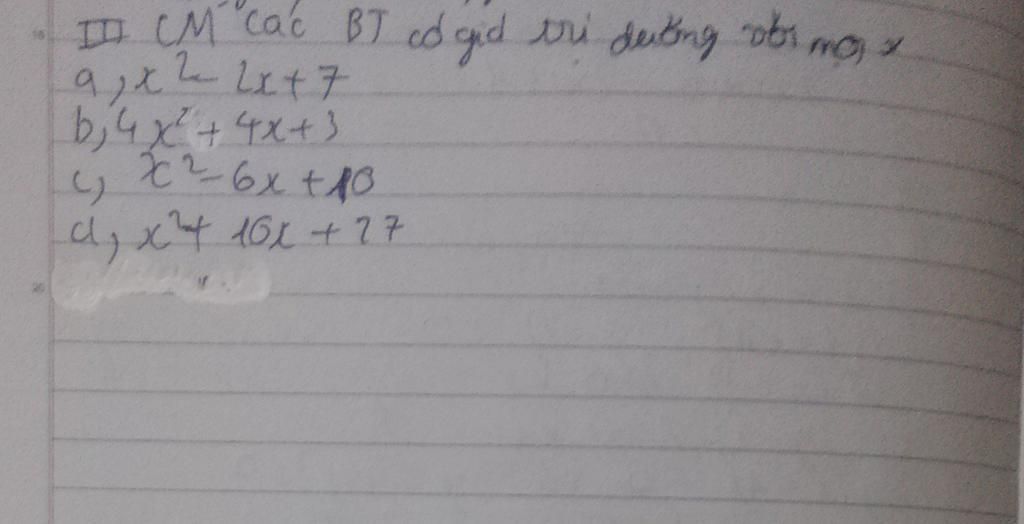 III CM các BT có giá trị dương với mọi x
a, x² - 2x + 7
b, 4x² + 4x + 3
c, x² - 6x + 10
d, x² + 10x + 27